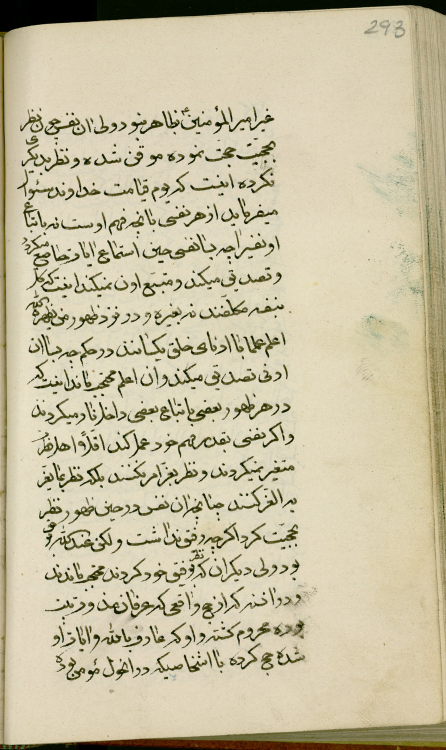 293
غیر امیر المؤمنین ع بظاهر نبود ولی ان نفس چون نظر
بحجیت حجت نموده موقن شده و نظر بدیگری
نکرده اینست که یوم قیامت خداوند سئوال
میفرماید از هر نفسی بانچه فهم اوست نه باتباع
او نفیرا چه بسا نفسی حین استماع امارجامع میگردد
و تصدیق میکند و متبع او نمیکند اینست که کل
بنفسه مکلفند نه بغیره و در نزد ظهور من یظهره الله
اعلم علما با ادنای خلق یکسانند در حکم چه بسا ان
ادنی تصدیق میکند و ان اعلم محتجب میماند اینست که
در هر ظهور بعضی باتباع بعضی داخل نار میگردند
و اگر نفسی بقدر فهم خود عمل کند اقلا و اهل نظر
متغیر نمیگردند و نظر بغیر امر نکنند بلکه نظر بما یغیر
به الغیر کنند چنانچه ان نفس در حین ظهور نظر
بحجیت کرد اگرچه رفیق نداشت ولکن عند الله رفیع
بود ولی دیگران که نظر برفیق خود کردند محتجب ماندند
و دو اخذ که از حج واقعی که عرفان من و دینت
بوده محروم گشتند و او که عارف بالله و ایات او
شده حج کرده با اشخاصیکه در انحول مؤمن بوده